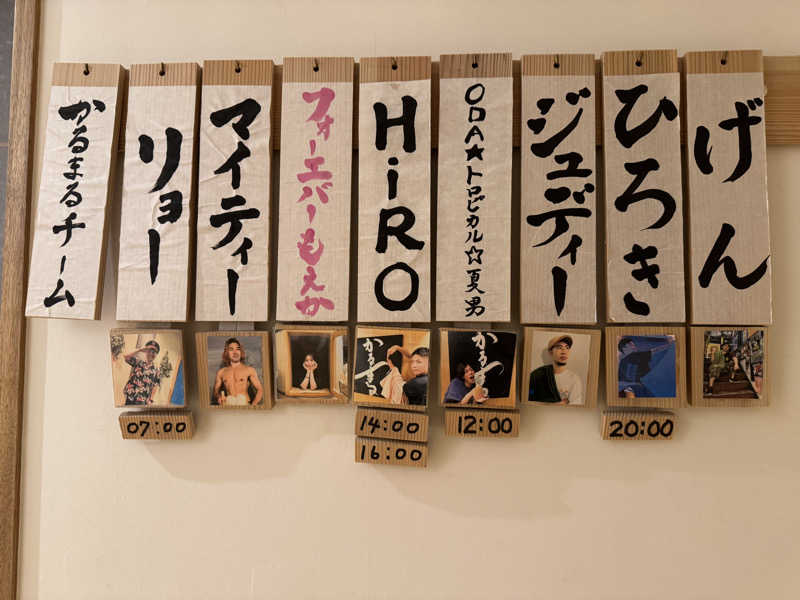 げん
ひろき
ジュディー
ODA★トロピカル☆夏男
HiRO
フォーエバーもえか
マイティー
リョー
かるまるチーム
かるまる
かるまる
20:00
12:00
14:00
16:00
07:00